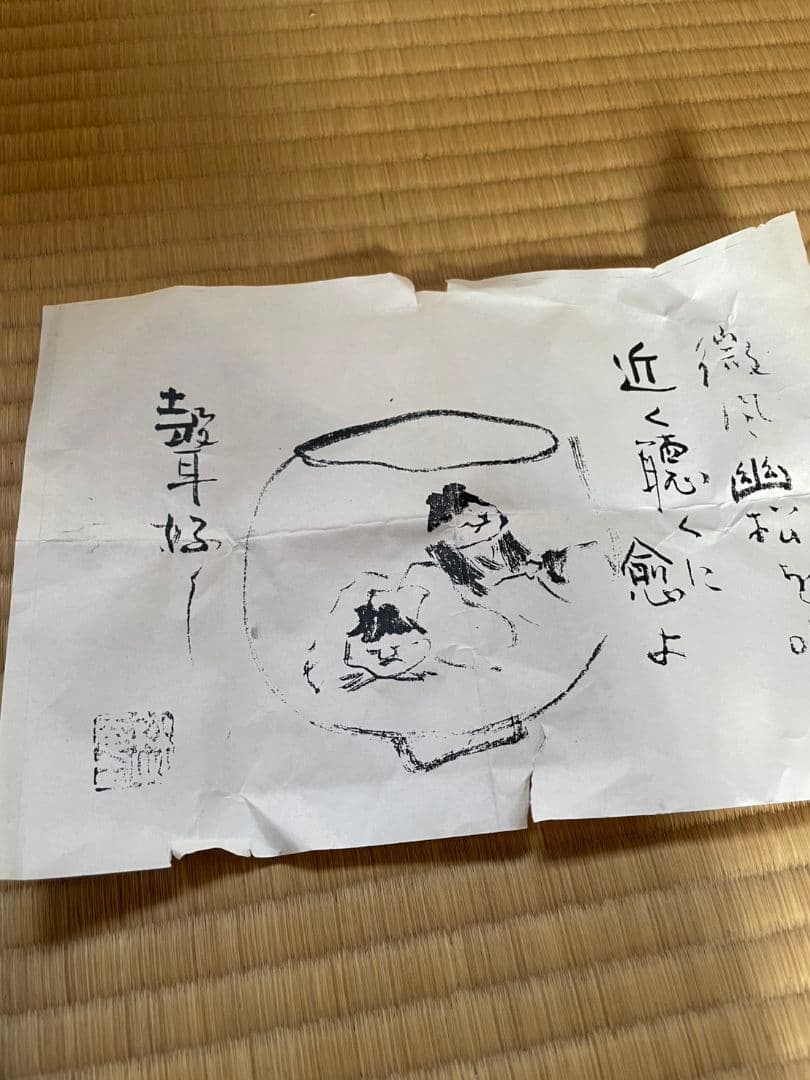 微風幽松を
近く聴くに愈よ
聲好し